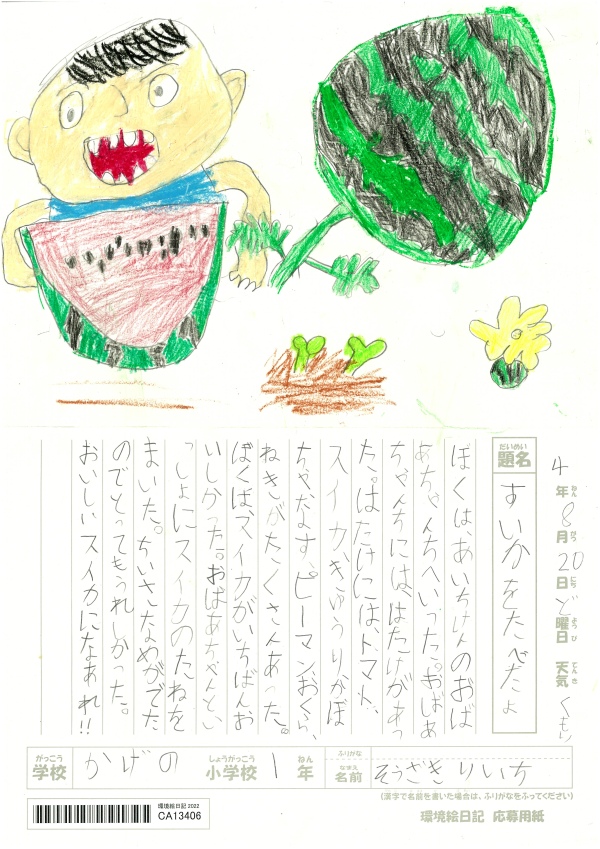 4年8月20日ど曜日 天気くもり
ねん がつ にち ようび てんき
だいめい
題名
すいかをたべだよ
ぼくは、あいちけんのおば
あちゃんちへいった。おばあ
ちゃんちには、はたけがあっ
た。はたけには、トマト、
スイカ、きゅうり、かぼ
ちゃ、なす、ピーマン、おくら、
ねぎがたくさんあった。
ぼくは、スイカがいちばんお
いしかった。おばあちゃんとい
っしょにスイカのたねを
まいた。ちいさなめがでた
のでとってもうれしかった。
おいしいスイカになあれ!!
がっこう しょうがっこう ねん ふりがな
学校 かげの 小学校 1年
なまえ
名前 そうざきりいち
(漢字で名前を書いた場合は、ふりがなをふってください)
環境絵日記 2022
CA13406
環境絵日記 応募用紙